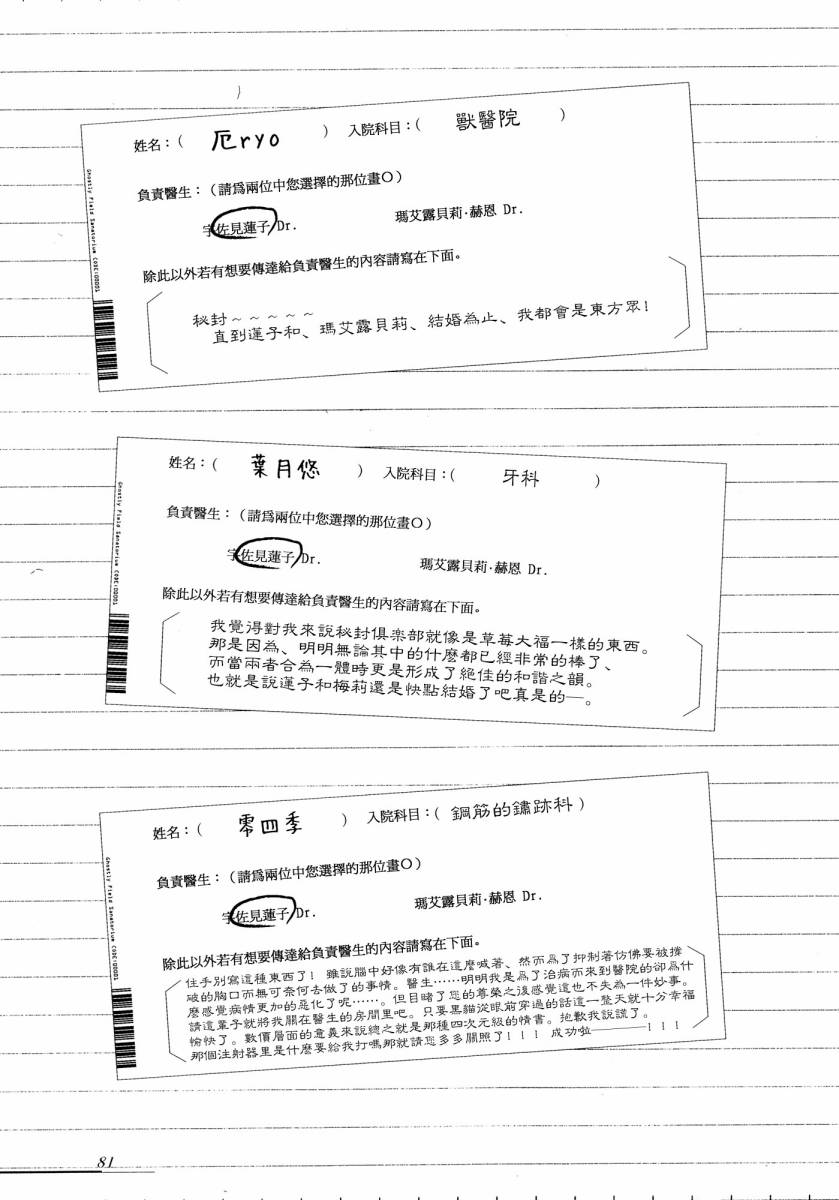 姓名：( 厄ryo ) 入院科目：( 獸醫院 )
負責醫生：（請爲兩位中您選擇的那位畫O）
宇佐見蓮子 Dr. 瑪艾露貝莉·赫恩 Dr.
除此以外若有想要傳達給負責醫生的內容請寫在下面。
秘封～～～～～
直到蓮子和、瑪艾露貝莉、結婚為止、我都會是東方眾!
Ghostly Field Sanatorium CODE:00001
姓名：( 葉月悠 ) 入院科目：( 牙科 )
負責醫生：（請爲兩位中您選擇的那位畫O）
宇佐見蓮子 Dr. 瑪艾露貝莉·赫恩 Dr.
除此以外若有想要傳達給負責醫生的內容請寫在下面。
我覺得對我來說秘封俱楽部就像是草莓大福一樣的東西。
那是因為、明明無論其中的什麽都已經非常的棒了、
而當兩者合為一體時更是形成了絕佳的和諧之韻。
也就是說蓮子和梅莉還是快點結婚了吧真是的—。
Ghostly Field Sanatorium CODE:00001
姓名：( 零四季 ) 入院科目：( 鋼筋的鏽跡科 )
負責醫生：（請爲兩位中您選擇的那位畫O）
宇佐見蓮子 Dr. 瑪艾露貝莉·赫恩 Dr.
除此以外若有想要傳達給負責醫生的內容請寫在下面。
住手別寫這種東西了! 雖說腦中好像有誰在這麽喊著、然而爲了抑制著仿佛要被撐
破的胸口而無可奈何去做了的事情。醫生……明明我是爲了治病而來到醫院的卻爲什
麽感覺病情更加的惡化了呢……。但目睹了您的尊榮之後感覺這也不失為一件妙事。
請這輩子就將我關在醫生的房間里吧。只要黑貓從眼前穿過的話這一整天就十分幸福
愉快了。數價層面的意義來說總之就是那種四次元級的情書。抱歉我說謊了。
那個注射器里是什麽要給我打嗎那就請您多多關照了!!! 成功啦————!!!
Ghostly Field Sanatorium CODE:00001
81